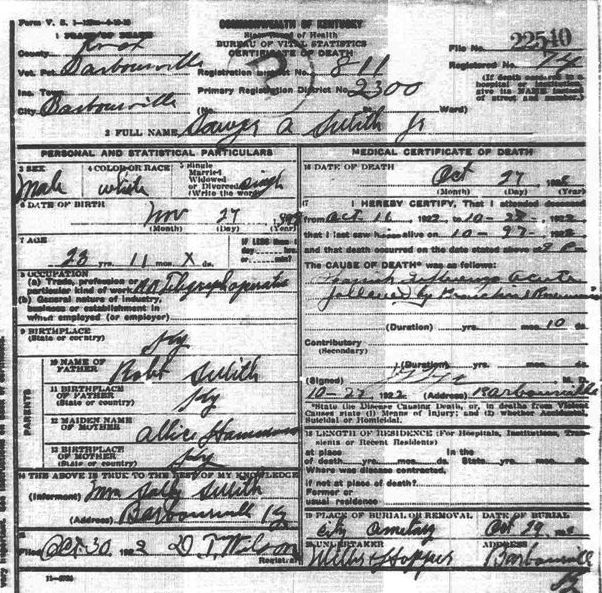 COMMONWEALTH OF KENTUCKY
State Board of Health
BUREAU OF VITAL STATISTICS
CERTIFICATE OF DEATH
1 PLACE OF DEATH
County Knox
Vot. Pct. Barbourville
Inc. Town
City Barbourville
File No. 22540
Registered No. 74
Registration District No. 811
Primary Registration District No. 2300
(If death occurred in a hospital or institution give its NAME instead of street and number.)
(No. St. Ward)
2 FULL NAME A Jr
PERSONAL AND STATISTICAL PARTICULARS
3 SEX
Male
4 COLOR OR RACE
white
5 Single
Married
Widowed
or Divorced
(Write the word)
Single
6 DATE OF BIRTH
Nov 27
(Month) (Day) (Year)
7 AGE
23 yrs. 11 mos. X ds.
IF LESS than 1 day hrs. or min.?
8 OCCUPATION
(a) Trade, profession or particular kind of work RR Telegraph operator
(b) General nature of industry, business or establishment in which employed (or employer)
9 BIRTHPLACE
(State or country)
Ky
PARENTS
10 NAME OF FATHER
Robt
11 BIRTHPLACE OF FATHER
(State or country)
Ky
12 MAIDEN NAME OF MOTHER
Allice
13 BIRTHPLACE OF MOTHER
(State or country)
Ky
14 THE ABOVE IS TRUE TO THE BEST OF MY KNOWLEDGE
(Informant) Mrs Sally
(Address) Barbourville Ky
15
Filed Oct 30 1922 D. T. Wilson
Registrar
MEDICAL CERTIFICATE OF DEATH
16 DATE OF DEATH
Oct 27
(Month) (Day) (Year)
17 I HEREBY CERTIFY, That I attended deceased
from Oct 16 1922 to 10-27- 1922
that I last saw him alive on 10-27 1922
and that death occurred on the date stated above at
The CAUSE OF DEATH* was as follows:
Acute
followed by Bronchial Pneumonia
(Duration) yrs. mos. 10 ds.
Contributory
(Secondary)
(Duration) yrs. mos. ds.
(Signed) M. D.
10-27 1922 (Address) Barbourville
*State the Disease Causing Death, or, in deaths from Violent Causes state (1) Means of Injury; and (2) whether Accidental, Suicidal or Homicidal.
18 LENGTH OF RESIDENCE (For Hospitals, Institutions, Transients or Recent Residents)
At place of death yrs. mos. ds. In the State yrs. mos. ds.
Where was disease contracted,
if not at place of death?
Former or usual residence
19 PLACE OF BURIAL OR REMOVAL
City Cemetery
DATE OF BURIAL
Oct 29
20 UNDERTAKER
Miller & Hopper
ADDRESS
Barbourville
Ky